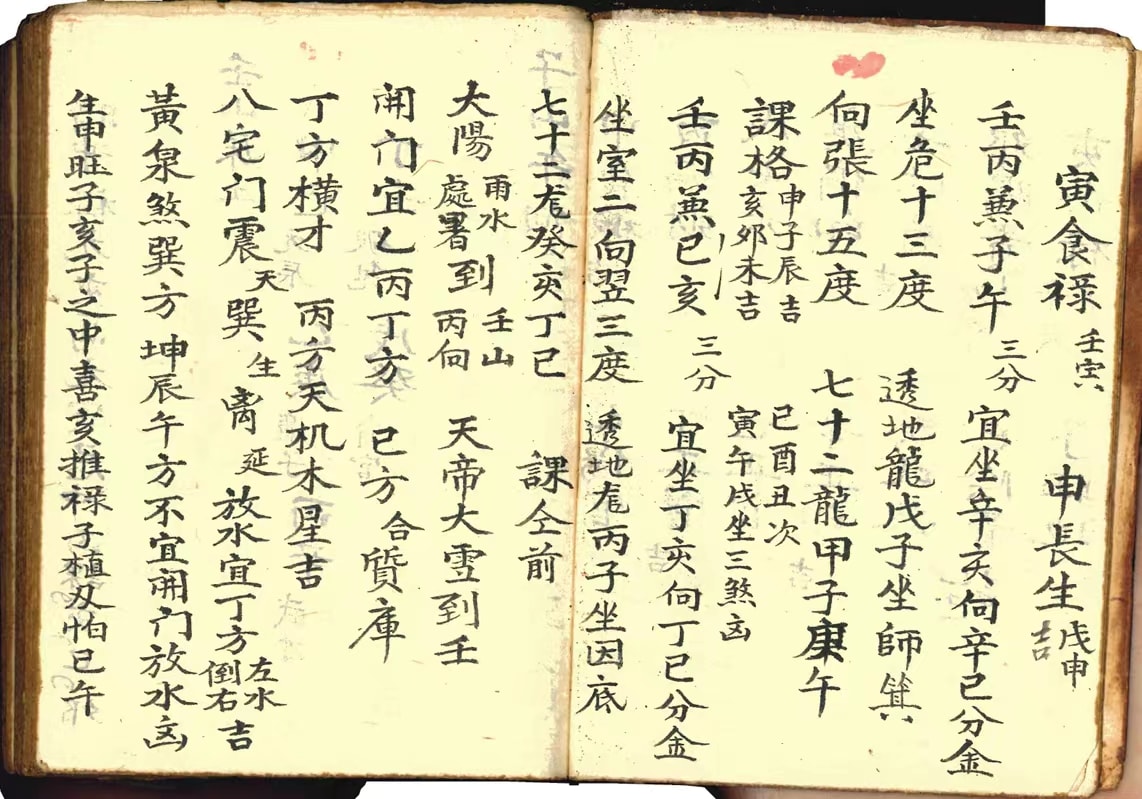 寅食祿 壬寅 申長生 戊申吉
壬丙兼子午 三分 宜坐辛亥向辛巳分金
坐危十三度 透地龍戊子坐師箕
向張十五度 七十二龍甲子庚午
課格 申子辰吉 亥卯未吉 巳酉丑次 寅午戌坐三煞凶
壬丙兼巳亥 三分 宜坐丁亥向丁巳分金
坐室二向翌三度 透地尨丙子坐因底
七十二尨癸亥丁巳 課仝前
大陽 雨水 處暑 到 壬山 丙向 天帝大雪到壬
開门宜乙丙丁方 巳方合質庫
丁方橫才 丙方天机木星吉
八宅门震天 巽生 离延 放水宜丁方 左水倒右 吉
黃泉煞巽方 坤辰午方不宜開门放水凶
生申旺子亥子之中喜亥推祿子植刄怕巳午